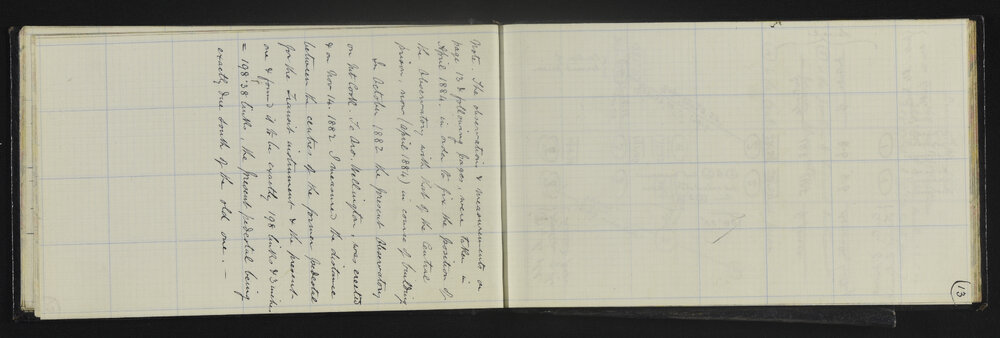 Note. The observations & measurements on
page 13 & following pages, were taken in
April 1884. in order to fix the position of
the Observatory with that of the Central
prison, now (April 1884) in course of building
In October 1882 the present Observatory
on Mt Cook Te Aro. Wellington, was erected
& on Nov 14. 1882 I measured the distance
between the centres of the former pedestal
for the Transit instrument & the present
one & found it to be exactly 198 links & 3 inches
= 198.38 links, the present pedestal being
exactly due south of the old one. . –
13